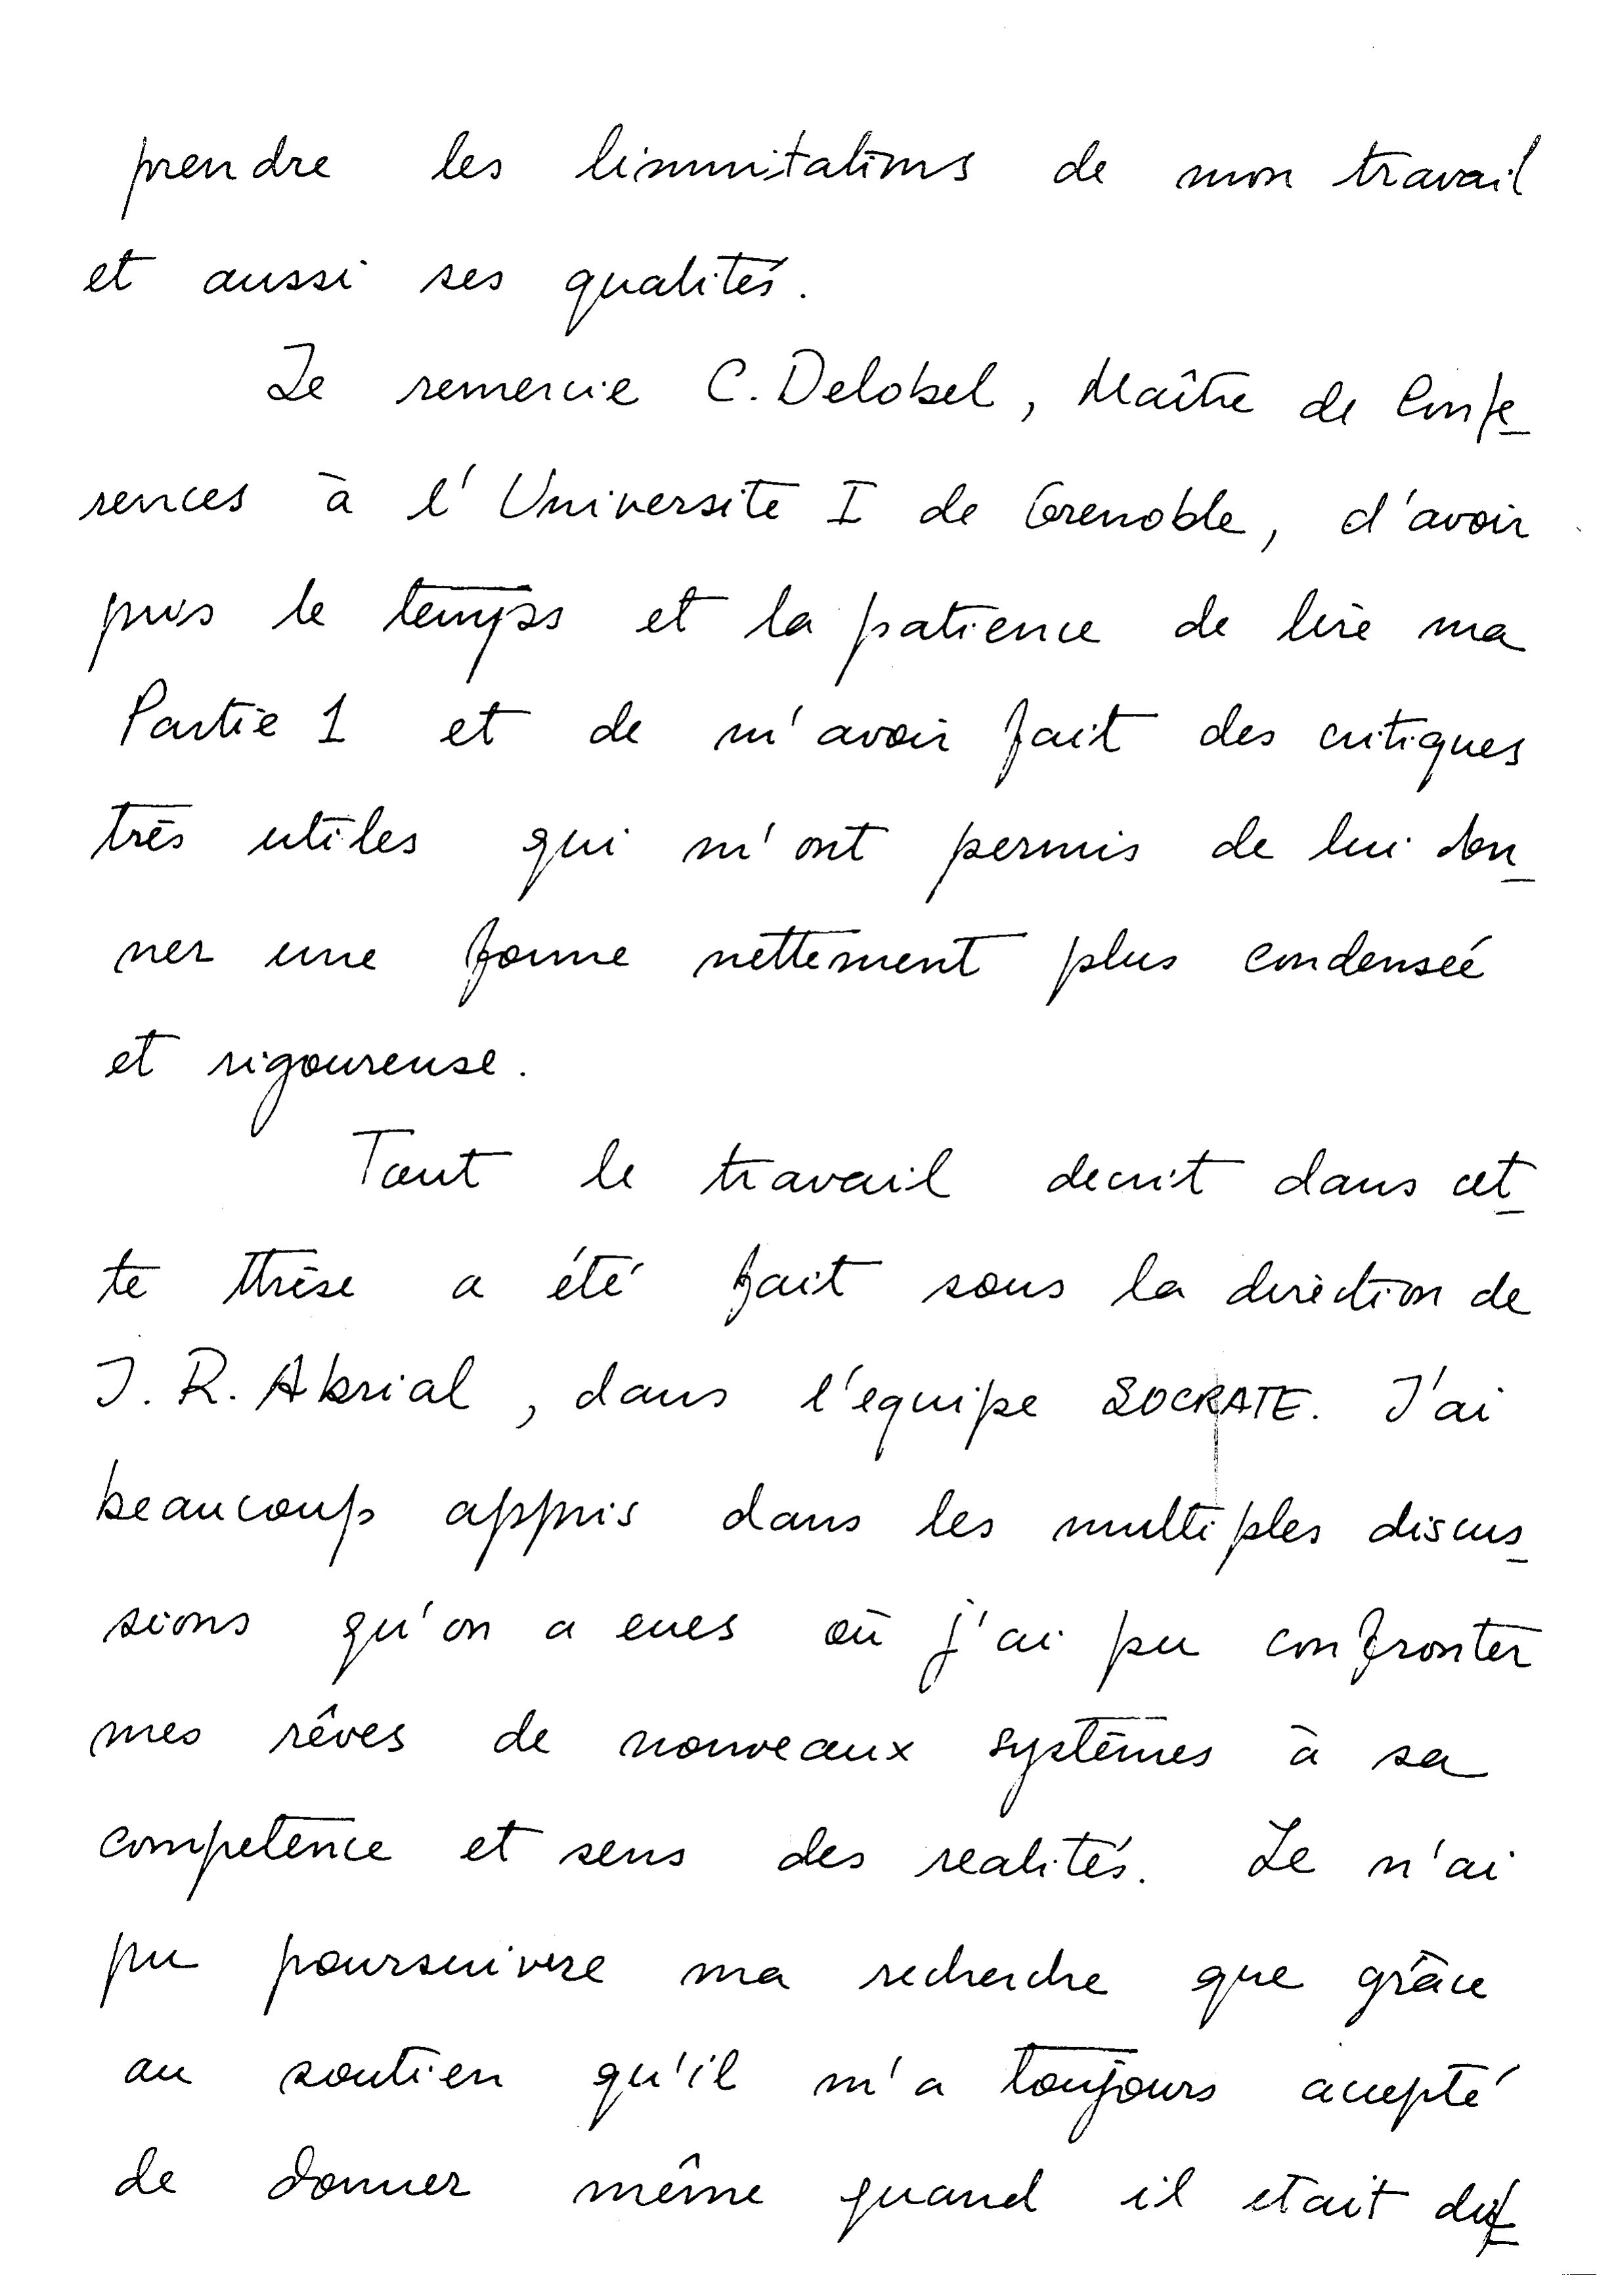 prendre les limmitations de mon travail
et aussi ses qualités.
Je remercie C. Delobel, Maître de Confe_
rences à l'Universite I de Grenoble, d'avoir
pris le temps et la patience de lire ma
Partie 1 et de m'avoir fait des critiques
très utiles qui m'ont permis de lui don_
ner une forme nettement plus condenseé
et rigoureuse.
Tout le travail decrit dans cet_
te thèse a été fait sous la direction de
J. R. Abrial, dans l'equipe SOCRATE. J'ai
beaucoup appris dans les multiples discus_
sions qu'on a eues où j'ai pu confronter
mes rêves de nouveaux systèmes à sa
competence et sens des realités. Je n'ai
pu poursuivre ma recherche que grâce
au soutien qu'il m'a toujours accepté
de donner même quand il etait dif_